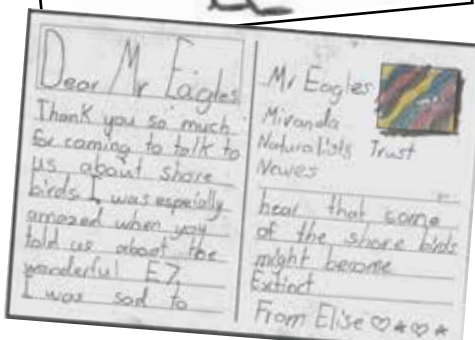 Dear Mr Eagles
Thank you so much
for coming to talk to
us about shore
birds I was especially
amazed when you
told us about the
wonderful E7,
I was sad to
Mr Eagles
Miranda
Naturalists Trust
Newes
hear that some
of the shore birds
might become
Extinct
From Elise ♡★♡★